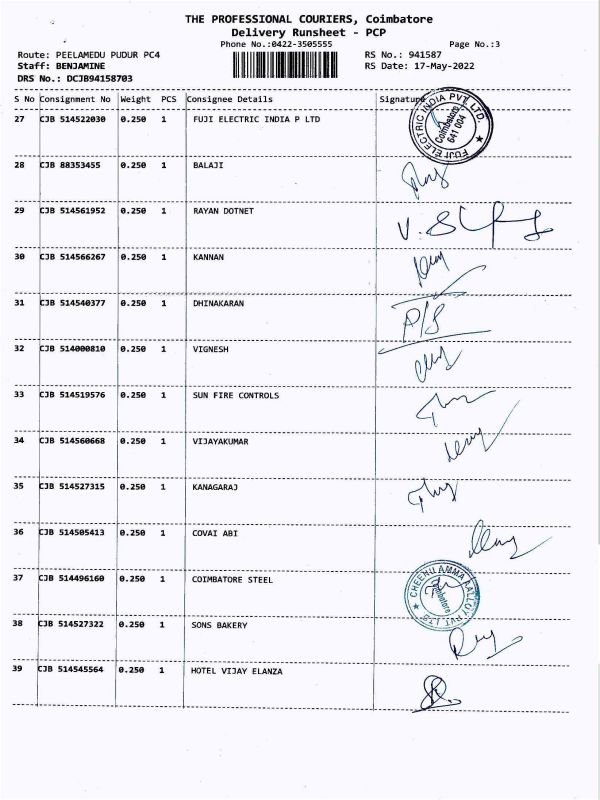 THE PROFESSIONAL COURIERS, Coimbatore
Delivery Runsheet - PCP
Phone No.:0422-3505555 Page No.:3
Route: PEELAMEDU PUDUR PC4 RS No.: 941587
Staff: BENJAMINE RS Date: 17-May-2022
DRS No.: DCJB94158703
S No Consignment No Weight PCS Consignee Details Signature
27 CJB 514522030 0.250 1 FUJI ELECTRIC INDIA P LTD
FUJI ELECTRIC INDIA PVT. LTD.
Coimbatore
641 004
28 CJB 88353455 0.250 1 BALAJI
29 CJB 514561952 0.250 1 RAYAN DOTNET
30 CJB 514566267 0.250 1 KANNAN
31 CJB 514540377 0.250 1 DHINAKARAN
32 CJB 514000810 0.250 1 VIGNESH
33 CJB 514519576 0.250 1 SUN FIRE CONTROLS
34 CJB 514560668 0.250 1 VIJAYAKUMAR
35 CJB 514527315 0.250 1 KANAGARAJ
36 CJB 514505413 0.250 1 COVAI ABI
37 CJB 514496160 0.250 1 COIMBATORE STEEL
CHEENU AMMA ALLOY PVT. LTD.
Coimbatore
38 CJB 514527322 0.250 1 SONS BAKERY
39 CJB 514545564 0.250 1 HOTEL VIJAY ELANZA